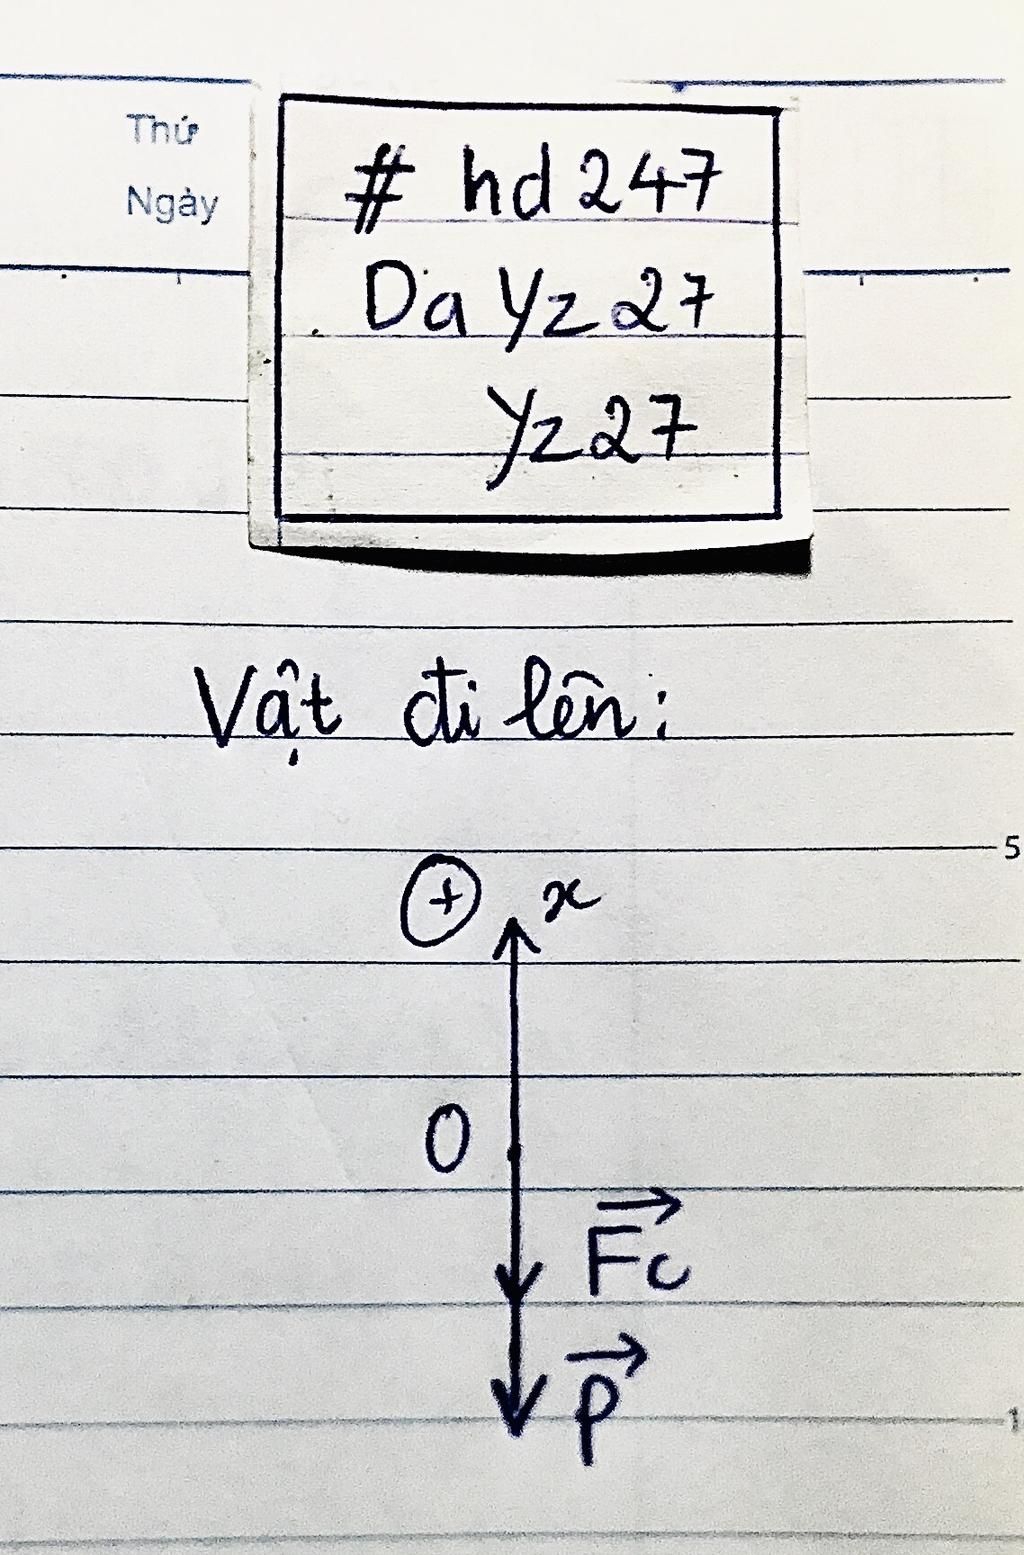 Thứ
Ngày
# hd247
Da Yz27
Yz27
Vật đi lên:
5
+ x
0
Fc
P
1